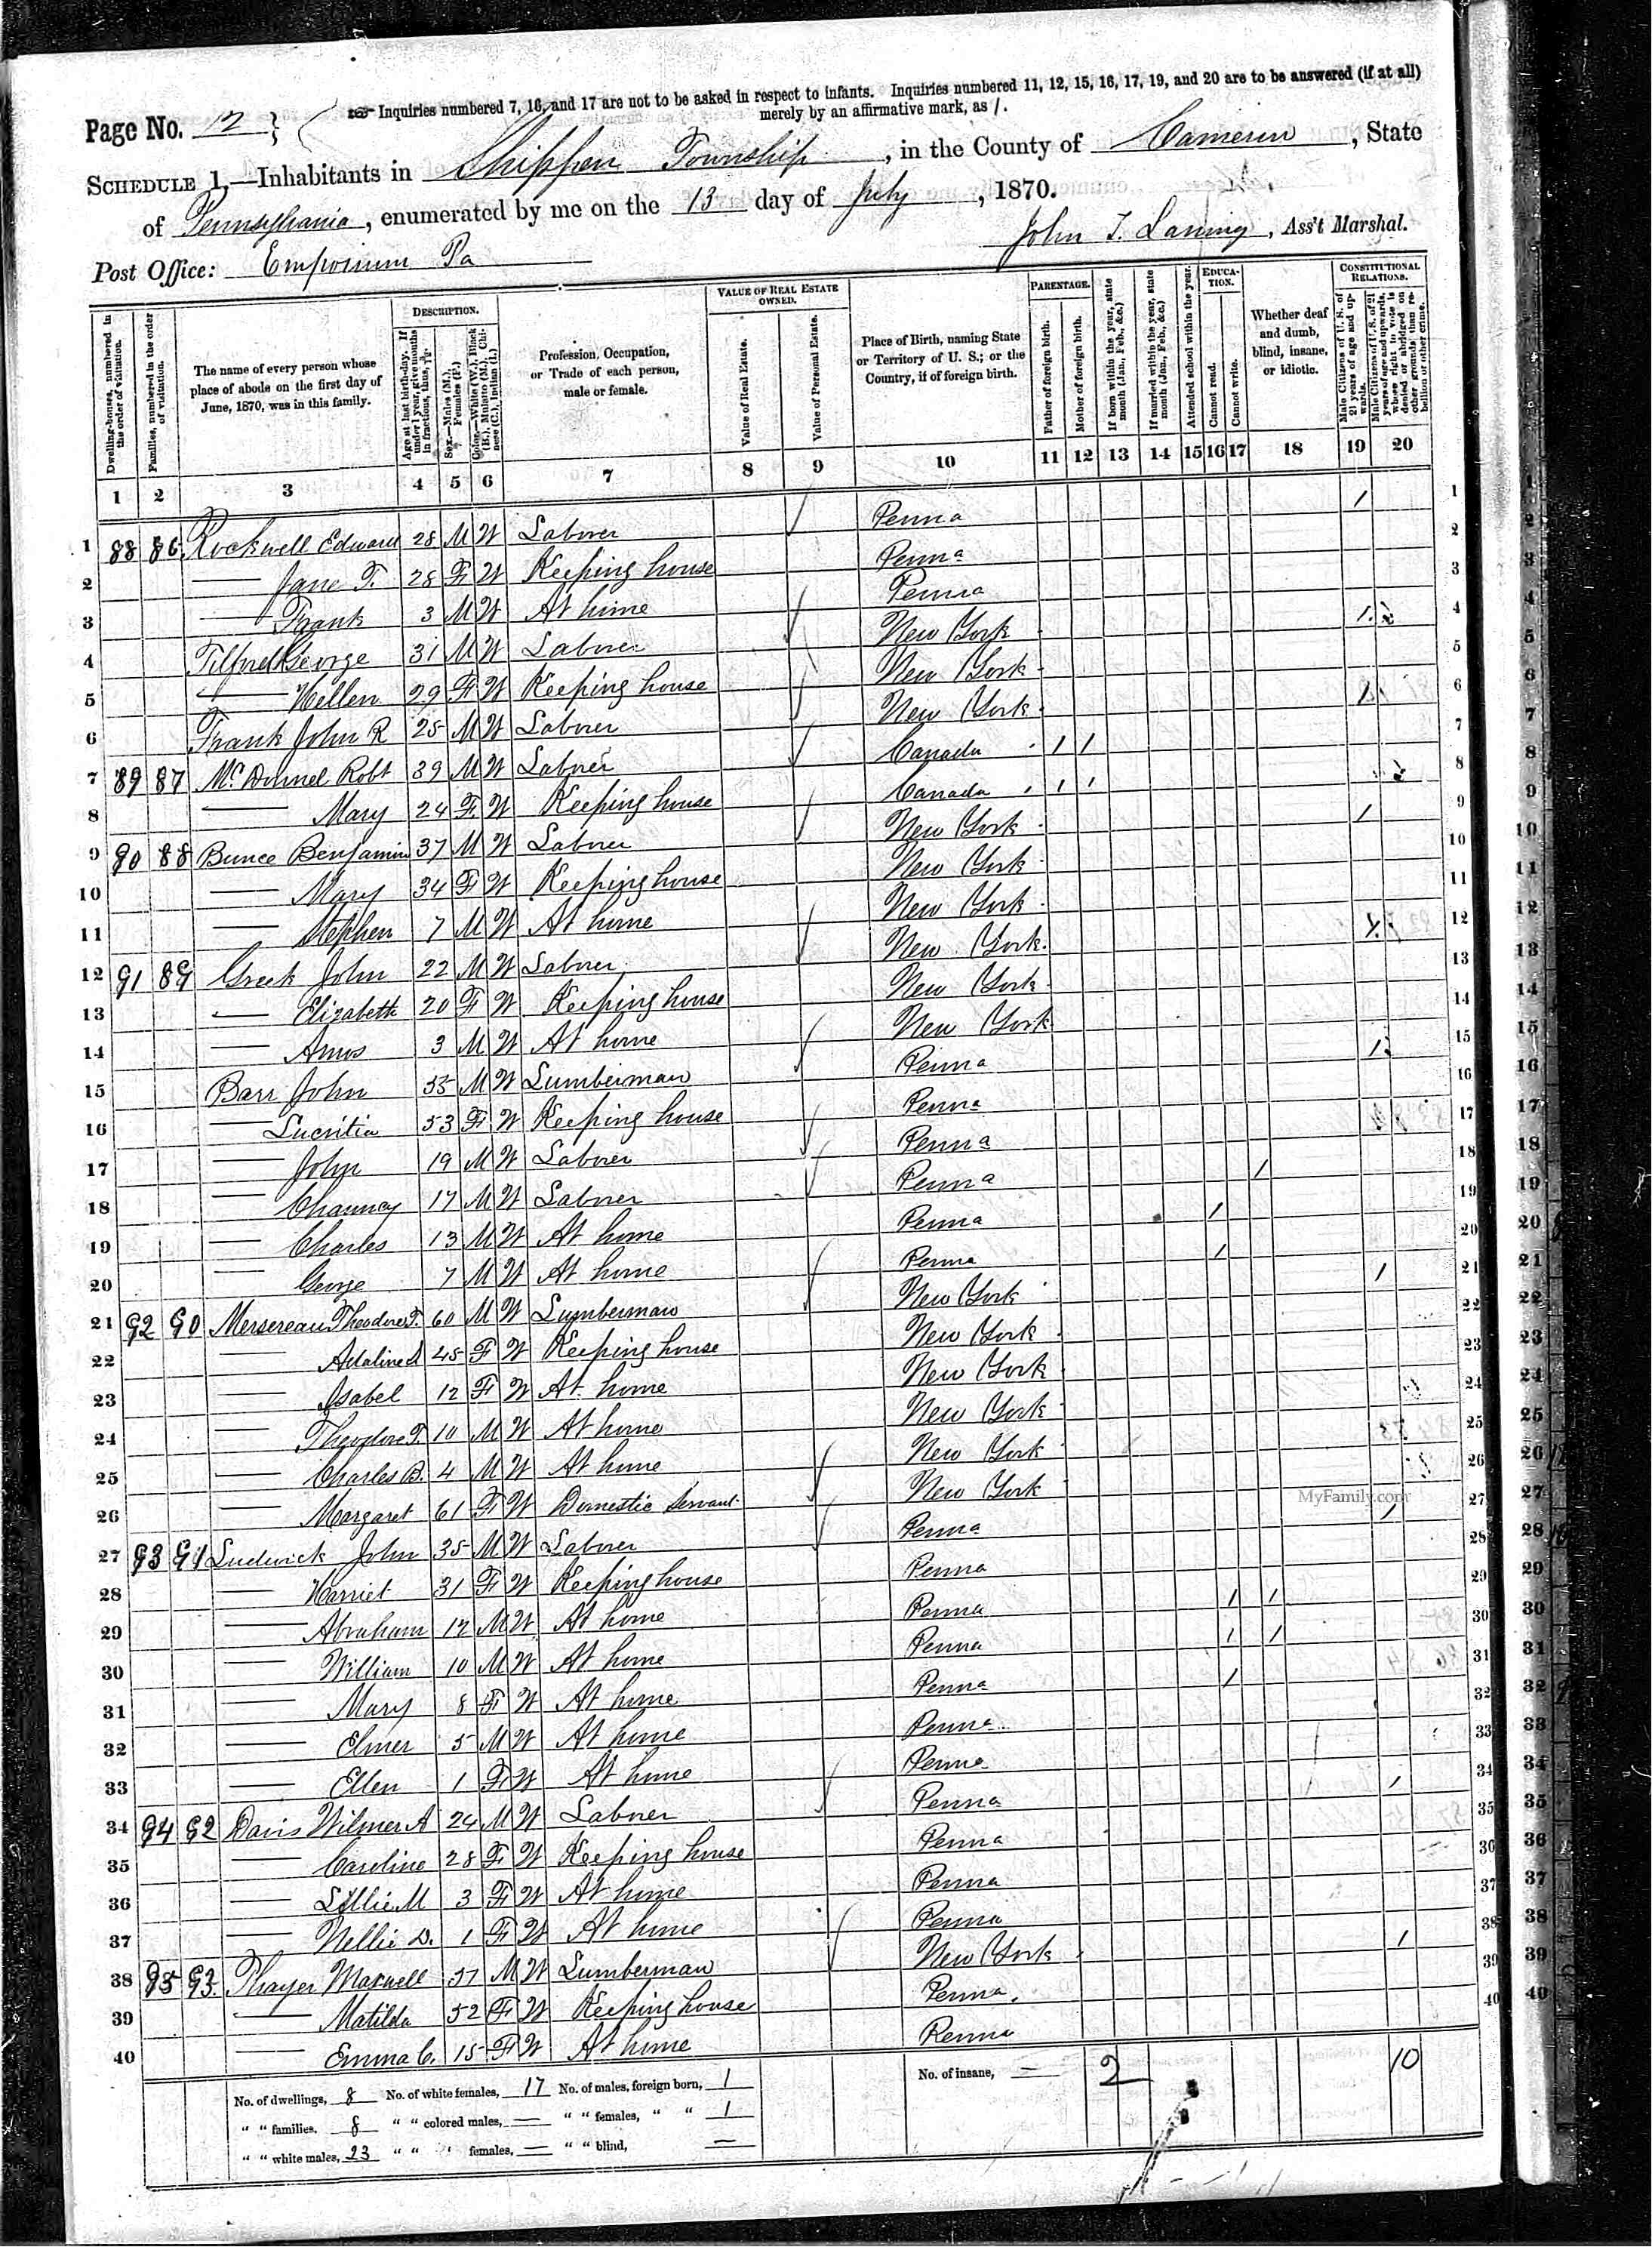 Page No. 12
Inquiries numbered 7, 16, and 17 are not to be asked in respect to infants. Inquiries numbered 11, 12, 15, 16, 17, 19, and 20 are to be answered (if at all)
merely by an affirmative mark, as /.
SCHEDULE 1.—Inhabitants in Shippen Township, in the County of Cameron, State
of Pennsylvania, enumerated by me on the 13 day of July, 1870.
Post Office: Emporium Pa
John T. Laning, Ass't Marshal.
Dwelling-houses, numbered in the order of visitation.
Families, numbered in the order of visitation.
The name of every person whose place of abode on the first day of June, 1870, was in this family.
DESCRIPTION.
Age at last birth-day. If under 1 year, give months in fractions, thus, 3/12.
Sex.—Males (M.), Females (F.)
Color.—White (W.), Black (B.), Mulatto (M.), Chinese (C.), Indian (I.)
Profession, Occupation, or Trade of each person, male or female.
VALUE OF REAL ESTATE OWNED.
Value of Real Estate.
Value of Personal Estate.
Place of Birth, naming State or Territory of U. S.; or the Country, if of foreign birth.
PARENTAGE.
Father of foreign birth.
Mother of foreign birth.
If born within the year, state month (Jan., Feb., &c.)
If married within the year, state month (Jan., Feb., &c.)
EDUCATION.
Attended school within the year.
Cannot read.
Cannot write.
Whether deaf and dumb, blind, insane, or idiotic.
CONSTITUTIONAL RELATIONS.
Male Citizens of U. S. of 21 years of age and upwards.
Male Citizens of U. S. of 21 years of age and upwards, whose right to vote is denied or abridged on other grounds than rebellion or other crime.
1 2 3 4 5 6 7 8 9 10 11 12 13 14 15 16 17 18 19 20
1 88 86 Rockwell Edward 28 M W Laborer Penna / 1
2 — Jane T. 28 F W Keeping house Penna 2
3 — Frank 3 M W At home Penna 3
4 George 31 M W Laborer New York / 4
5 — Hellen 29 F W Keeping house New York 5
6 Frank John R 25 M W Laborer New York / 6
7 89 87 McDonnel Robt 39 M W Laborer Canada / / 7
8 — Mary 24 F W Keeping house Canada / / 8
9 90 88 Bunce Benjamin 37 M W Laborer New York / 9
10 — Mary 34 F W Keeping house New York 10
11 — Stephen 7 M W At home New York 11
12 91 89 Greek John 22 M W Laborer New York / 12
13 — Elizabeth 20 F W Keeping house New York 13
14 — Amos 3 M W At home New York 14
15 Barr John 55 M W Lumberman Penna / 15
16 — Lucritia 53 F W Keeping house Penna 16
17 — John 19 M W Laborer Penna 17
18 — Chauncy 17 M W Laborer Penna / 18
19 — Charles 13 M W At home Penna / 19
20 — George 7 M W At home Penna / 20
21 92 90 Mersereau Theodore T. 60 M W Lumberman New York / 21
22 — Adaline 45 F W Keeping house New York 22
23 — Isabel 12 F W At home New York 23
24 — Theodore T. 10 M W At home New York 24
25 — Charles B. 4 M W At home New York 25
26 — Margaret 61 F W Domestic Servant New York 26
27 93 91 Ludwick John 35 M W Laborer Penna / 27
28 — Harriet 31 F W Keeping house Penna 28
29 — Abraham 12 M W At home Penna / / 29
30 — William 10 M W At home Penna / / 30
31 — Mary 8 F W At home Penna / 31
32 — Elmer 5 M W At home Penna 32
33 — Ellen 1 F W At home Penna 33
34 94 92 Davis Wilmer A 24 M W Laborer Penna / 34
35 — Caroline 28 F W Keeping house Penna 35
36 — Lillie M 3 F W At home Penna 36
37 — Nellie D. 1 F W At home Penna 37
38 95 93 Thayer Maxwell 57 M W Lumberman New York / 38
39 — Matilda 52 F W Keeping house Penna 39
40 — Emma C. 15 F W At home Penna 40
No. of dwellings, 8 No. of white females, 17 No. of males, foreign born, 1 No. of insane, — 2 10
" " families, 8 " " colored males, — " " females, " " 1
" " white males, 23 " " " females, — " " blind, —
MyFamily.com